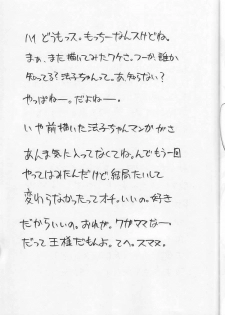 ハイ どもっス。もっちーなんスけどね。
まぁ、また描いてみたワケさ。つーか、誰か
知ってる?法子ちゃんって。あ、知らない?
やっぱねー。だよねー。
いや前描いた法子ちゃんマンガがさ
あんま気に入ってなくてね。んでもう一回
やってはみたんだけど結局たいして
変わらなかったってオチ。いいの。好き
だからいいの。おれが。ワガママなー
だって王様だもんよ。てへ。スマヌ。